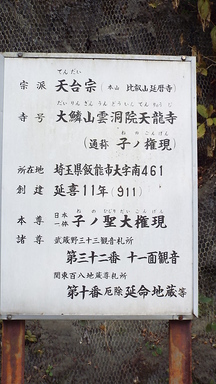 てんだい
宗派 天台宗 (本山 比叡山延暦寺)
だいりんざんうんとういんてんりゅうじ
寺号 大鱗山雲洞院天龍寺
ねのごんげん
(通称 子ノ権現)
所在地 埼玉県飯能市大字南461
創建 延喜11年(911)
ねのひじりだいごんげん
本尊 日本一体 子ノ聖大権現
諸尊 武蔵野三十三観音札所
第三十二番 十一面観音
関東百八地蔵尊札所
第十番厄除 延命地蔵等